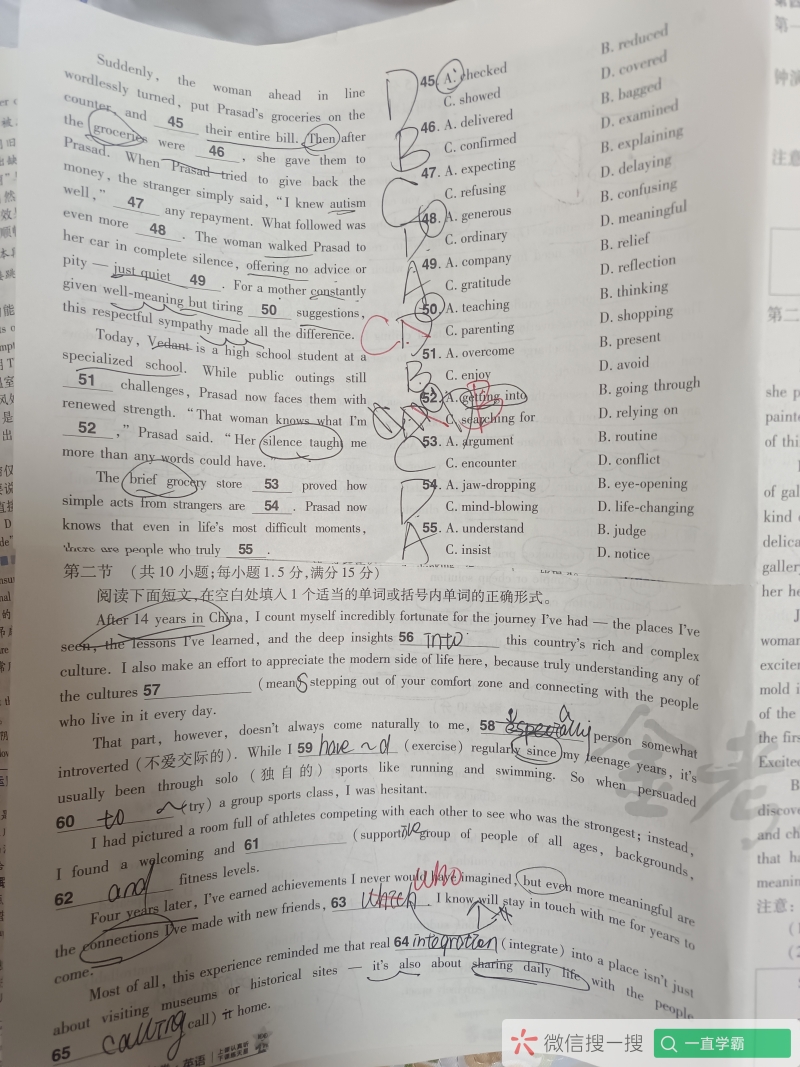 Suddenly, the woman ahead in line
wordlessly turned, put Prasad's groceries on the
counter and 45 their entire bill. Then after
the groceries were 46 , she gave them to
Prasad. When Prasad tried to give back the
money, the stranger simply said, "I knew autism
well," 47 any repayment. What followed was
even more 48 . The woman walked Prasad to
her car in complete silence, offering no advice or
pity — just quiet 49 . For a mother constantly
given well-meaning but tiring 50 suggestions,
this respectful sympathy made all the difference.
Today, Vedant is a high school student at a
specialized school. While public outings still
51 challenges, Prasad now faces them with
renewed strength. "That woman knows what I'm
52 ," Prasad said. "Her silence taught me
more than any words could have."
The brief grocery store 53 proved how
simple acts from strangers are 54 . Prasad now
knows that even in life's most difficult moments,
there are people who truly 55 .
D 45. A. checked B. reduced
C. showed D. covered
B 46. A. delivered B. bagged
C. confirmed D. examined
C 47. A. expecting B. explaining
C. refusing D. delaying
D 48. A. generous B. confusing
C. ordinary D. meaningful
A 49. A. company B. relief
C. gratitude D. reflection
C 50. A. teaching B. thinking
C. parenting D. shopping
B 51. A. overcome B. present
C. enjoy D. avoid
B 52. A. getting into B. going through
C. searching for D. relying on
C 53. A. argument B. routine
C. encounter D. conflict
D 54. A. jaw-dropping B. eye-opening
C. mind-blowing D. life-changing
A 55. A. understand B. judge
C. insist D. notice
第二节 (共10小题;每小题1.5分,满分15分)
阅读下面短文,在空白处填入1个适当的单词或括号内单词的正确形式。
After 14 years in China, I count myself incredibly fortunate for the journey I've had — the places I've
seen, the lessons I've learned, and the deep insights 56 into this country's rich and complex
culture. I also make an effort to appreciate the modern side of life here, because truly understanding any of
the cultures 57 (mean s stepping out of your comfort zone and connecting with the people
who live in it every day.
That part, however, doesn't always come naturally to me, 58 a person somewhat
introverted (不爱交际的). While I 59 have ~d (exercise) regularly since my teenage years, it's
usually been through solo (独自的) sports like running and swimming. So when persuaded
60 to ~ (try) a group sports class, I was hesitant.
I had pictured a room full of athletes competing with each other to see who was the strongest; instead,
I found a welcoming and 61 (support ive group of people of all ages, backgrounds,
62 and fitness levels.
Four years later, I've earned achievements I never would have imagined, but even more meaningful are
the connections I've made with new friends, 63 which who I know will stay in touch with me for years to
come.
Most of all, this experience reminded me that real 64 integration (integrate) into a place isn't just
about visiting museums or historical sites — it's also about sharing daily life with the people
65 calling call) it home.
英语
金考
微信搜一搜
一直学霸
钟
注意
第二
she p
painte
of thi
of gal
kind
delica
gallery
her he
woman
exciten
mold i
of the
the firs
Excited
discove
and ch
that ha
meanin
注意: